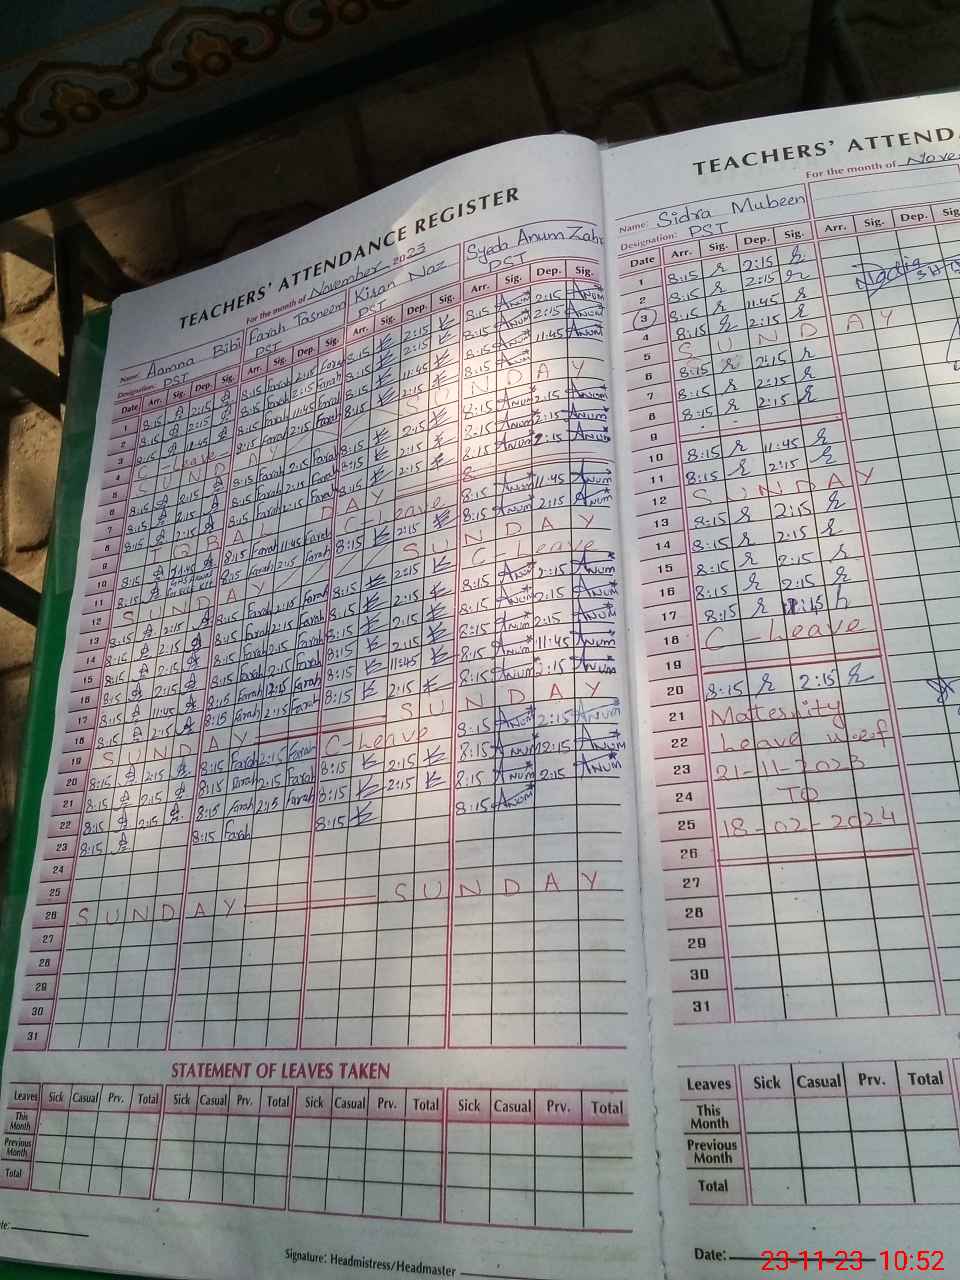 TEACHERS' ATTENDANCE REGISTER
For the month of November 2023
Name: Aamna Bibi Farah Tasneem Kiran Naz Syeda Anum Zahr
Designation: PST PST PST PST
Date Arr. Sig. Dep. Sig. Arr. Sig. Dep. Sig. Arr. Sig. Dep. Sig. Arr. Sig. Dep. Sig.
1 8:15 2:15 8:15 Farah 2:15 Farah 8:15 2:15 8:15 ANUM 2:15 ANUM
2 8:15 2:15 8:15 Farah 2:15 Farah 8:15 2:15 8:15 ANUM 2:15 ANUM
3 8:15 11:45 8:15 Farah 11:45 Farah 8:15 11:45 8:15 ANUM 11:45 ANUM
4 C-Leave 8:15 Farah 2:15 Farah 8:15 2:15 8:15 ANUM
5 SUNDAY SUNDAY
6 8:15 2:15 8:15 Farah 2:15 Farah 8:15 2:15 8:15 ANUM 2:15 ANUM
7 8:15 2:15 8:15 Farah 2:15 Farah 8:15 2:15 8:15 ANUM 2:15 ANUM
8 8:15 2:15 8:15 Farah 2:15 Farah 8:15 2:15 8:15 ANUM 2:15 ANUM
9 IQBAL DAY
10 8:15 11:45 8:15 Farah 11:45 Farah C-Leave 8:15 ANUM 11:45 ANUM
11 8:15 8:15 Farah 2:15 Farah 8:15 2:15 8:15 ANUM 2:15 ANUM
12 SUNDAY SUNDAY
13 8:15 2:15 8:15 Farah 2:15 Farah 8:15 2:15 C-Leave
14 8:15 2:15 8:15 Farah 2:15 Farah 8:15 2:15 8:15 ANUM 2:15 ANUM
15 8:15 2:15 8:15 Farah 2:15 Farah 8:15 2:15 8:15 ANUM 2:15 ANUM
16 8:15 2:15 8:15 Farah 2:15 Farah 8:15 2:15 8:15 ANUM 2:15 ANUM
17 8:15 11:45 8:15 Farah 12:15 Farah 8:15 11:45 8:15 ANUM 11:45 ANUM
18 8:15 2:15 8:15 Farah 2:15 Farah 8:15 2:15 8:15 ANUM 2:15 ANUM
19 SUNDAY SUNDAY
20 8:15 2:15 8:15 Farah 2:15 Farah C-Leave 8:15 ANUM 2:15 ANUM
21 8:15 2:15 8:15 Farah 2:15 Farah 8:15 2:15 8:15 ANUM 2:15 ANUM
22 8:15 2:15 8:15 Farah 2:15 Farah 8:15 2:15 8:15 ANUM 2:15 ANUM
23 8:15 8:15 Farah 8:15 8:15 ANUM
24
25
26 SUNDAY SUNDAY
27
28
29
30
31
STATEMENT OF LEAVES TAKEN
Leaves Sick Casual Prv. Total Sick Casual Prv. Total Sick Casual Prv. Total Sick Casual Prv. Total
This Month
Previous Month
Total
Signature: Headmistress/Headmaster
TEACHERS' ATTENDA
For the month of Nove
Name: Sidra Mubeen
Designation: PST
Date Arr. Sig. Dep. Sig. Arr. Sig. Dep. Sig
1 8:15 2:15
2 8:15 2:15
3 8:15 11:45
4 8:15 2:15
5 SUNDAY
6 8:15 2:15
7 8:15 2:15
8 8:15 2:15
9
10 8:15 11:45
11 8:15 2:15
12 SUNDAY
13 8:15 2:15
14 8:15 2:15
15 8:15 2:15
16 8:15 2:15
17 8:15
18 C-Leave
19
20 8:15 2:15
21 Matternity
22 Leave w.e.f
23 21-11-2023
24 TO
25 18-02-2024
26
27
28
29
30
31
Leaves Sick Casual Prv. Total
This Month
Previous Month
Total
Date:
23-11-23 10:52